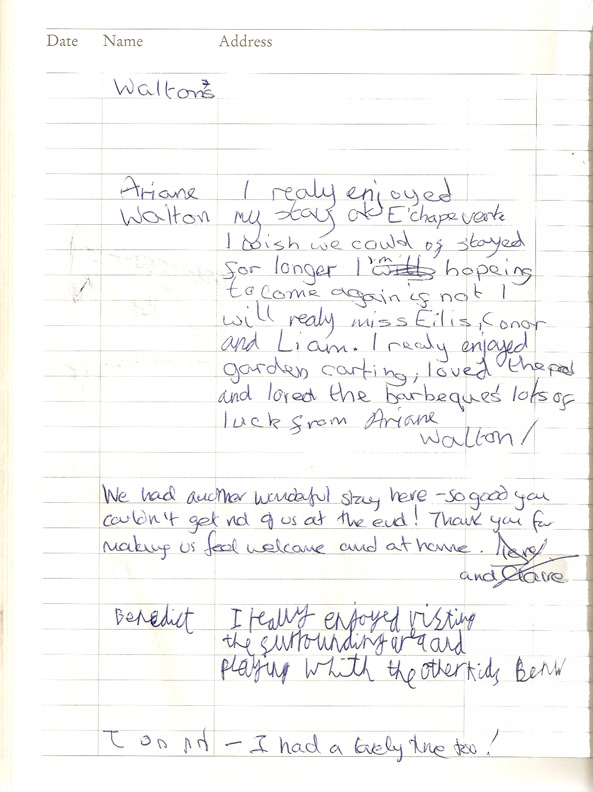 Date Name Address
Walton's
Ariane I realy enjoyed
Walton my stay at E'chapevente
I wish we could of stayed
for longer I'm hopeing
to come again if not I
will realy miss Eilis, Conor
and Liam. I realy enjoyed
garden carting, loved the
and loved the barbeques lots of
luck from Ariane
Walton!
We had another wonderful stay here - so good you
couldn't get rid of us at the end! Thank you for
making us feel welcome and at home.
and Claire
Benedict I really enjoyed visting
the surrounding area and
playing whith the other kids Ben W
- I had a lovely time too!